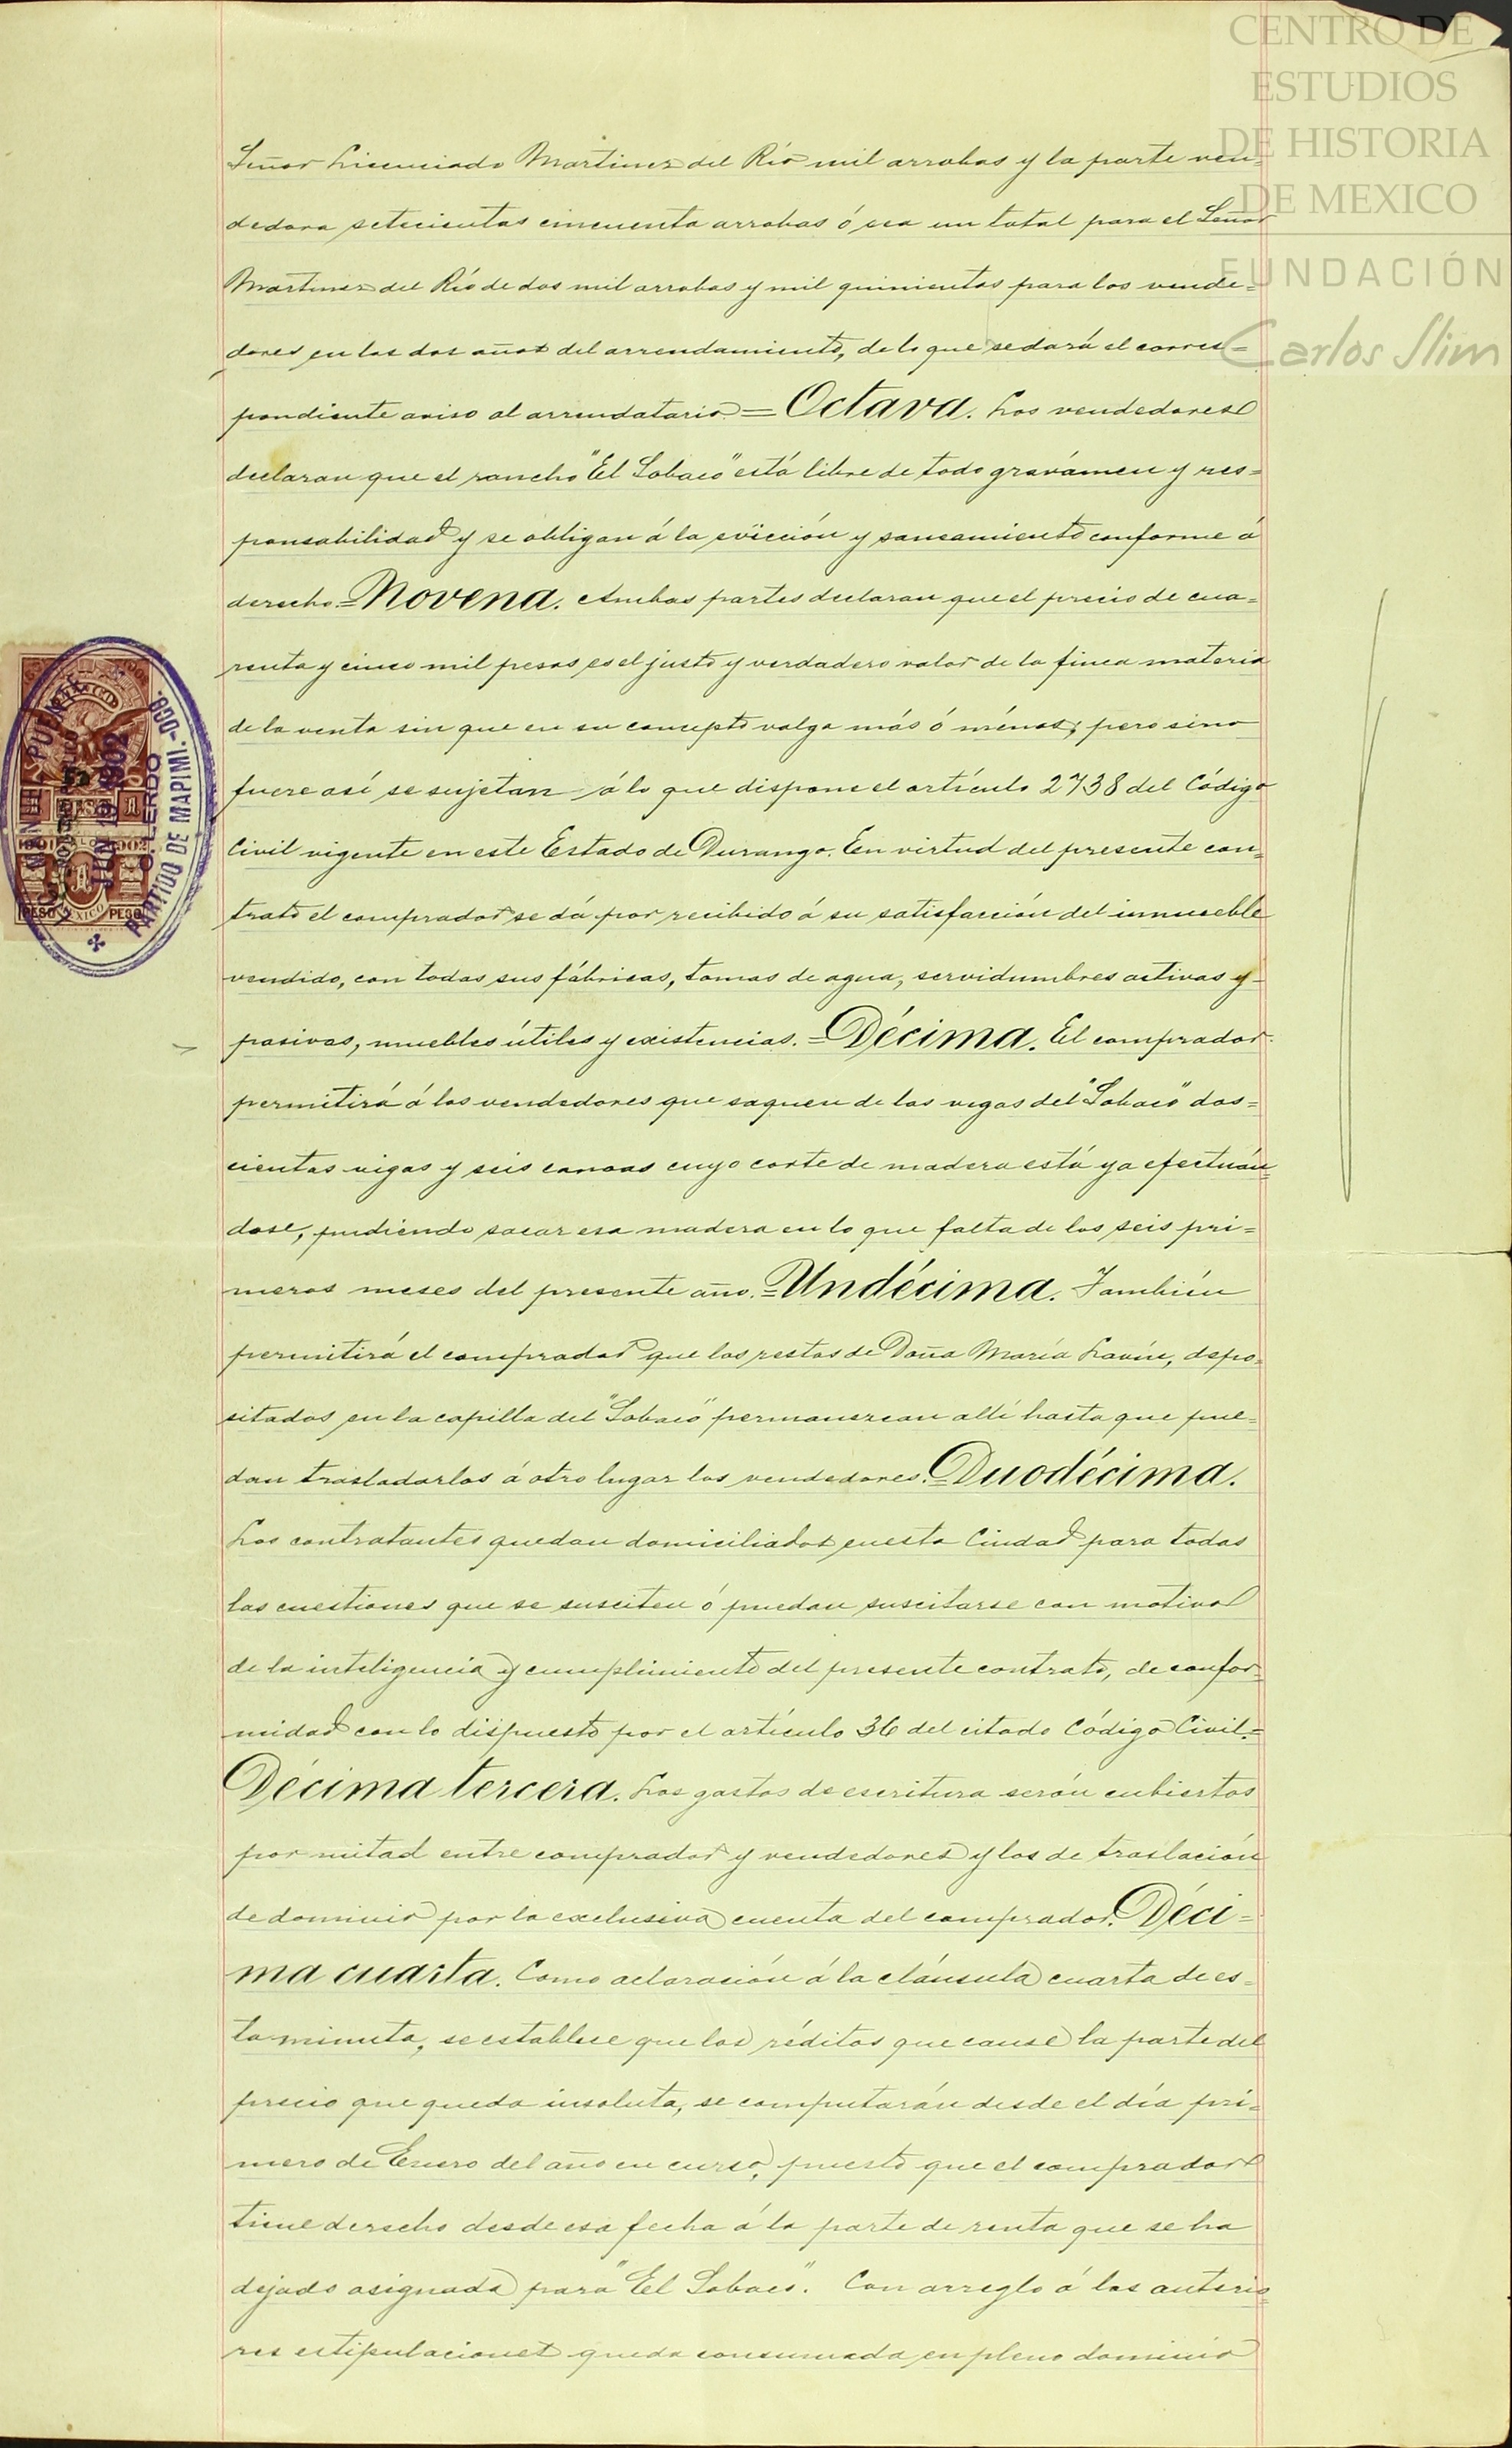 CENTRO DE
ESTUDIOS
DE HISTORIA
DE MEXICO
FUNDACIÓN
Carlos Slim
Señor Licenciado Martinez del Río mil arrobas y la parte ven-
dedora setecientas cincuenta arrobas ó sea un total para el Señor
Martinez del Río de dos mil arrobas y mil quinientas para los vende-
dores en los dos años del arrendamiento, de lo que se dará el corres-
pondiente aviso al arrendatario.= Octava. Los vendedores
declaran que el rancho "El Sobaco" está libre de todo gravámen y res-
ponsabilidad y se obligan á la evicción y saneamiento conforme á
derecho.= Novena. Ambas partes declaran que el precio de cua-
renta y cinco mil pesos es el justo y verdadero valor de la finca materia
de la venta sin que en su concepto valga más ó ménos; pero si no
fuere así se sujetan á lo que dispone el artículo 2738 del Código
Civil vigente en este Estado de Durango. En virtud del presente con-
trato el comprador se dá por recibido á su satisfacción del inmueble
vendido, con todas sus fábricas, tomas de agua, servidumbres activas y
pasivas, muebles útiles y existencias.= Décima. El comprador
permitirá á los vendedores que saquen de las vegas del "Sobaco" dos-
cientas vigas y seis canoas cuyo corte de madera está ya efectuán-
dose, pudiendo sacar esa madera en lo que falta de los seis pri-
meros meses del presente año.= Undécima. También
permitirá el comprador que los restos de Doña María Lavín, depo-
sitados en la capilla del "Sobaco" permanezcan allí hasta que pue-
dan trasladarlos á otro lugar los vendedores.= Duodécima.
Los contratantes quedan domiciliados en esta Ciudad para todas
las cuestiones que se susciten ó puedan suscitarse con motivo
de la inteligencia y cumplimiento del presente contrato, de confor-
midad con lo dispuesto por el artículo 36 del citado Código Civil.=
Décima tercera. Los gastos de escritura serán cubiertos
por mitad entre comprador y vendedores y los de traslación
de dominio por la exclusiva cuenta del comprador. Déci-
ma cuarta. Como aclaración á la cláusula cuarta de es-
ta minuta, se establece que los réditos que cause la parte del
precio que queda insoluta, se computarán desde el día pri-
mero de Enero del año en curso, puesto que el comprador
tiene derecho desde esa fecha á la parte de renta que se ha
dejado asignada para "El Sobaco". Con arreglo á las anterio-
res estipulaciones queda consumada en pleno dominio
MANUEL PUENTE
JUN 19 1902
C. LERDO
PARTIDO DE MAPIMI.-DGO.
UN PESO 1
PESO MEXICO PESO